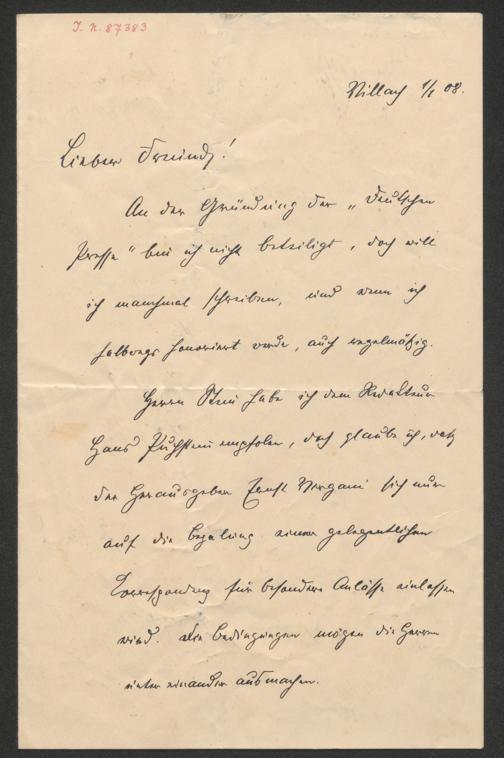 J. N. 87383
Villach 1/1 08.
Lieber Freund!
An der Gründung der „Deutschen
Presse“ bin ich nicht beteiligt, doch will
ich manchmal schreiben, und wenn ich
halbwegs honoriert werde, auch regelmäßig.
Herrn Stein habe ich dem Redakteur
Hans Puchstein empfolen, doch glaube ich, daß
der Herausgeber Ernst Vergani sich nur
auf die Bezalung einer gelegentlichen
Korrespondenz für besondere Anlässe einlassen
wird. Die Bedingungen mögen die Herren
unter einander ausmachen.